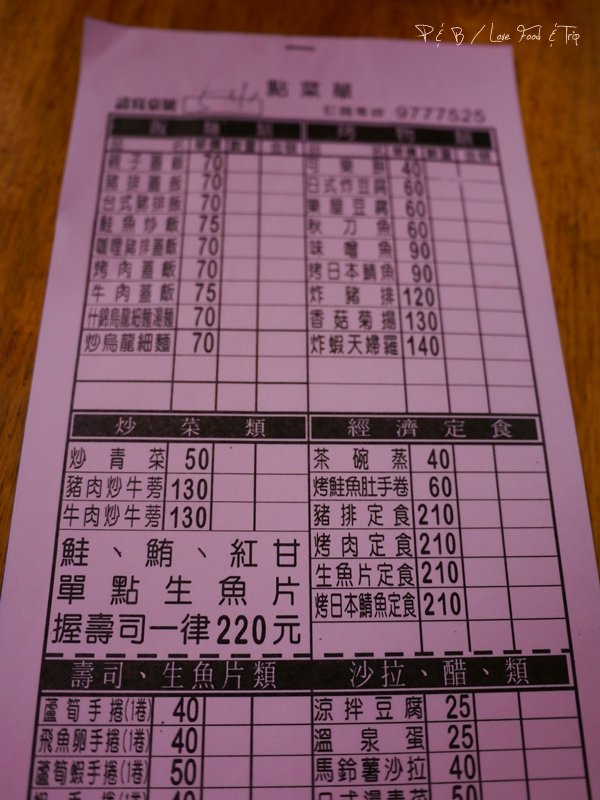 P & B / Love Food & Trip
點菜單
9777525
飯麵類 烤物類
單價 數量 金額 單價 數量 金額
親子蓋飯 70 40
豬排蓋飯 70 日式炸豆腐 60
台式豬排飯 70 60
鮭魚炒飯 75 秋刀魚 60
咖哩豬排蓋飯 70 味噌魚 90
烤肉蓋飯 70 烤日本鯖魚 90
牛肉蓋飯 75 炸豬排 120
什錦烏龍細麵湯麵 70 香菇菊揚 130
炒烏龍細麵 70 炸蝦天婦羅 140
炒菜類 經濟定食
炒青菜 50 茶碗蒸 40
豬肉炒牛蒡 130 烤鮭魚肚手卷 60
牛肉炒牛蒡 130 豬排定食 210
鮭、鮪、紅甘 烤肉定食 210
單點生魚片 生魚片定食 210
握壽司一律220元 烤日本鯖魚定食 210
壽司、生魚片類 沙拉、醋、類
蘆筍手捲(1卷) 40 涼拌豆腐 25
飛魚卵手捲(1卷) 40 溫泉蛋 25
蘆筍蝦手捲(1卷) 50 馬鈴薯沙拉 40